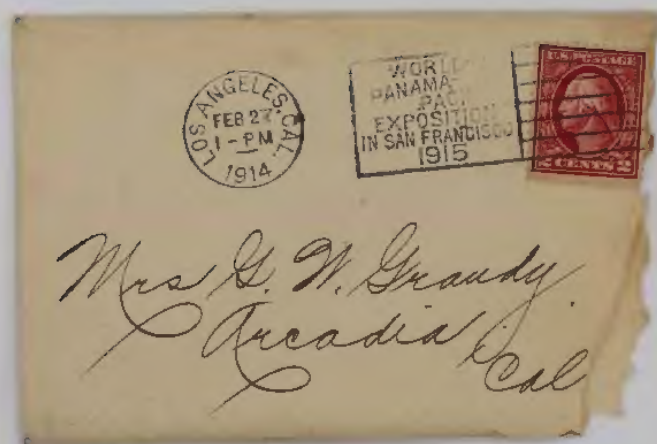 LOS ANGELES, CAL.
FEB 27
1 - PM
1914
WORLD
PANAMA
PAC
EXPOSITION
IN SAN FRANCISCO
1915
2 CENTS 2
Mrs G. W. Grandy.
Arcadia,
Cal